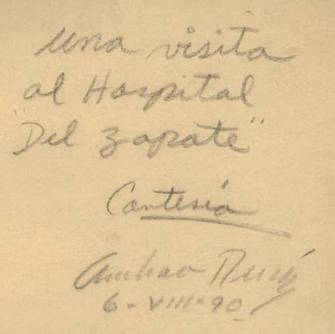 una visita
al Hospital
"Del zapate"
Cortesía
6-VIII-90